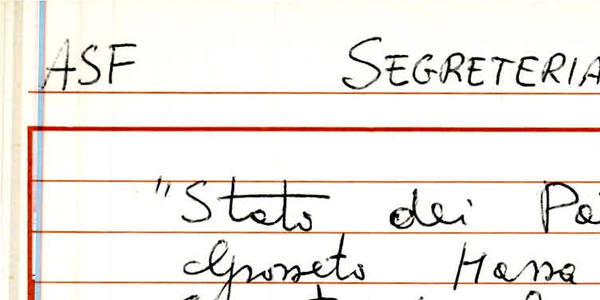 ASF SEGRETERIA
"Stato dei
Grosseto Massa